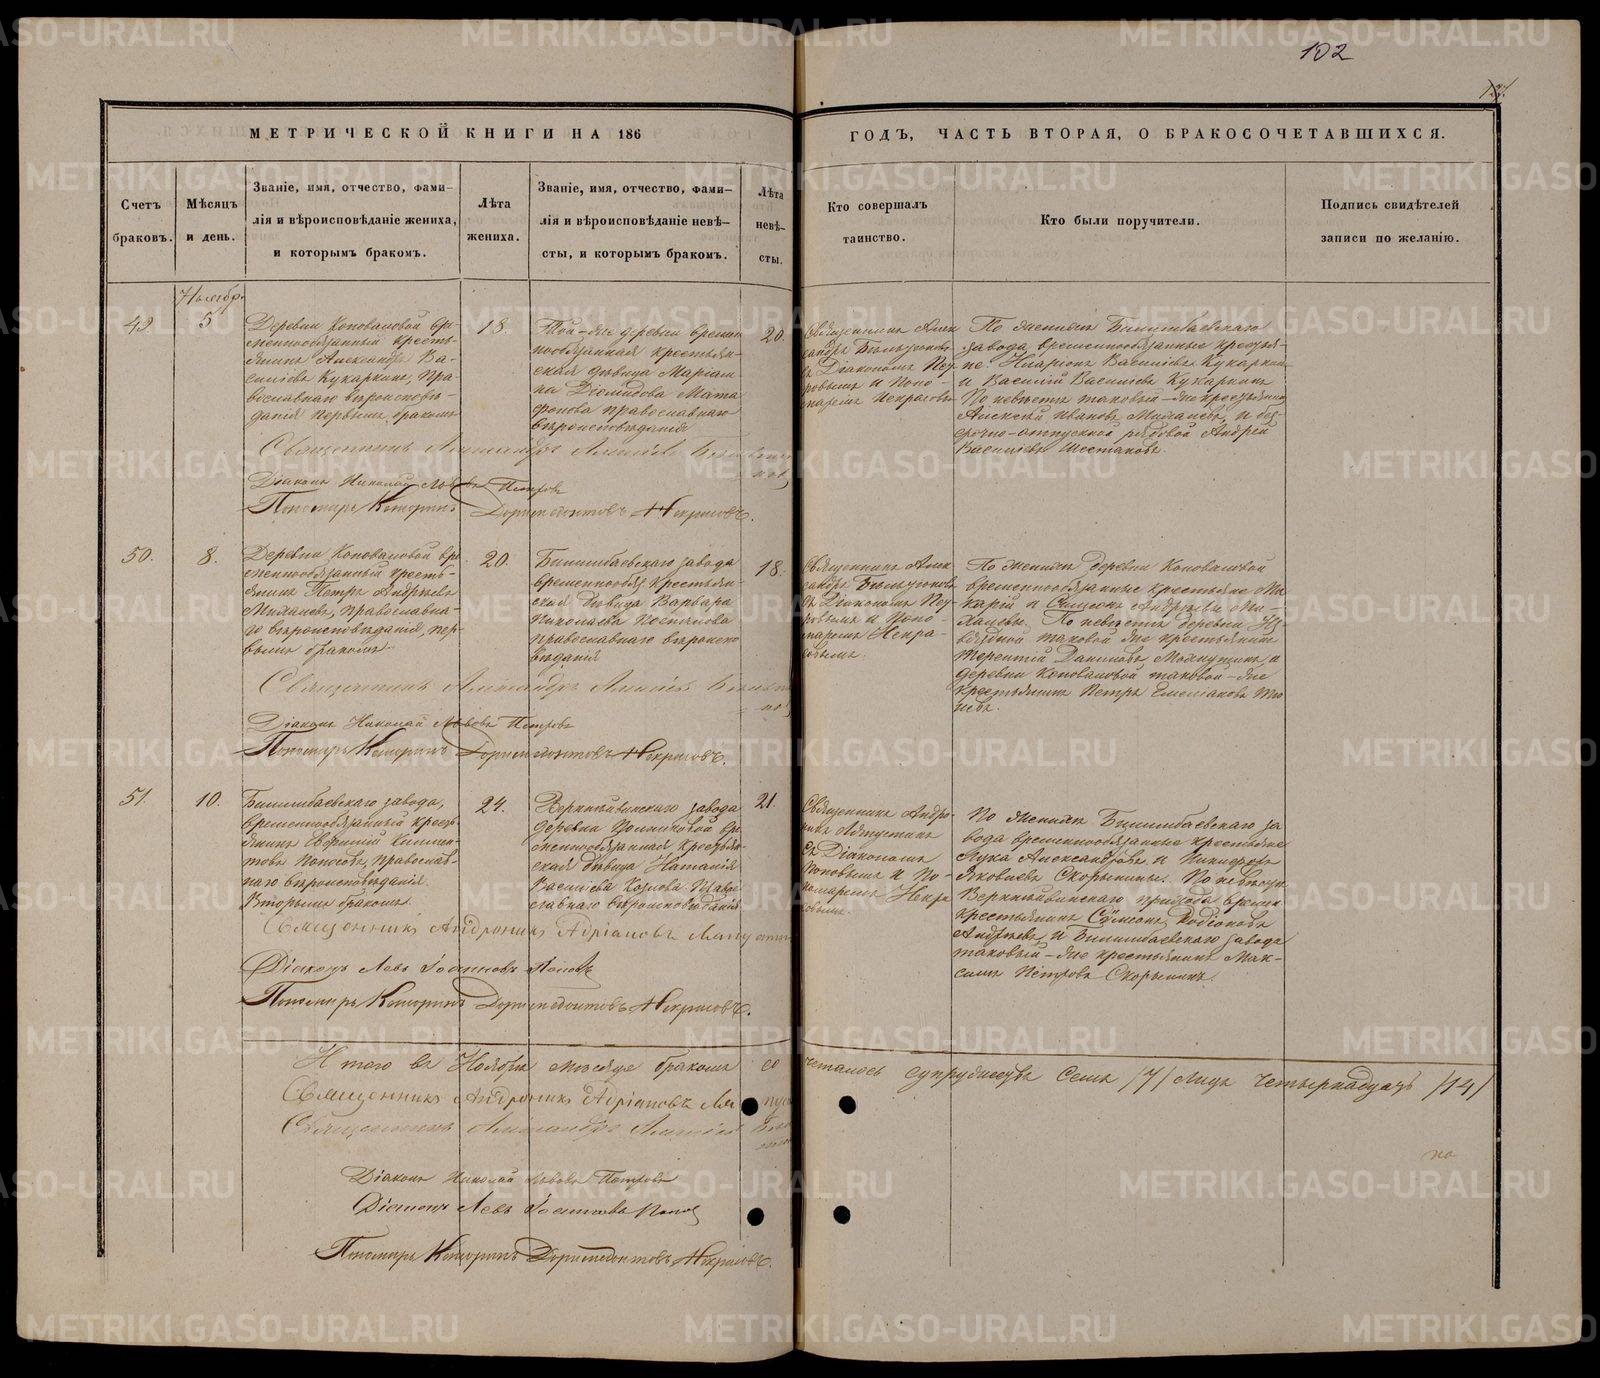 102
МЕТРИЧЕСКОЙ КНИГИ НА 186
ГОДЪ, ЧАСТЬ ВТОРАЯ, О БРАКОСОЧЕТАВШИХСЯ.
Счетъ
браковъ.
Мѣсяцъ
и день.
Званіе, имя, отчество, фами-
лія и вѣроисповѣданіе жениха,
и которымъ бракомъ.
Лѣта
жениха.
Званіе, имя, отчество, фами-
лія и вѣроисповѣданіе невѣ-
сты, и которымъ бракомъ.
Лѣта
невѣ-
сты.
Кто совершалъ
таинство.
Кто были поручители.
Подпись свидѣтелей
записи по желанію.
Ноябр.
49.
5
Деревни Коноваловой вре-
меннообязанный кресть-
янинъ Александръ Ва-
сильевъ Кукаркинъ, пра-
вославнаго вѣроисповѣ-
данія первымъ бракомъ
18.
Той-же деревни времен
нообязанная крестьян-
ская дѣвица Маріам-
на Діомидова Мата
фонова православнаго
вѣроисповѣданія
20.
Священникъ Алек
сандръ
съ Діакономъ Пет
ровымъ и Поно-
маремъ Некрасовъ
По женихѣ Билимбаевскаго
завода временнообязанные крестья-
не: Иларіонъ Васильевъ Кукаркинъ
и Василій Васильевъ Кукаркинъ
По невѣстѣ таковый-же крестьянинъ
Алексѣй Ивановъ и без-
срочно-отпускной рядовой Андрей
Васильевъ Шестаковъ.
Священникъ Александръ
Діаконъ Николай Львовъ Петровъ
Пономарь Доримедонтовъ Некрасовъ.
50.
8.
Деревни Коноваловой вре
меннообязанный кресть-
янинъ Петръ Андреевъ
православна-
го вѣроисповѣданія, пер-
вымъ бракомъ.
20.
Билимбаевскаго завода
временнообяз. крестьян-
ская дѣвица Варвара
Николаева
православнаго вѣроиспо
вѣданія
18.
Священникъ Алек
сандръ
съ Діакономъ Пет-
ровымъ и Поно-
маремъ Некра-
совымъ.
По женихѣ деревни Коноваловой
временнообязанные крестьяне Ма-
карій и Симеонъ Андреевы
По невѣстѣ деревни
таковой же крестьянинъ
Терентій Даниловъ и
деревни Коноваловой таковой-же
крестьянинъ Петръ Емельяновъ
Священникъ Александръ
Діаконъ Николай Львовъ Петровъ
Пономарь Доримедонтовъ Некрасовъ.
51.
10.
Билимбаевскаго завода,
временнообязанный кресть-
янинъ Евфимій
православ-
наго вѣроисповѣданія.
Вторымъ бракомъ.
24.
Верхнейвинскаго завода
деревни вре
меннообязанная крестьян-
ская дѣвица Наталія
Васильева Козлова Право
славнаго вѣроисповѣданія.
21.
Священникъ Андро-
никъ Ляпустинъ
съ Діакономъ
Поповымъ и По-
номаремъ Некра
совымъ.
По женихѣ Билимбаевскаго за
вода временнообязанные крестьяне
Лука Александровъ и Никифоръ
Яковлевъ Скорынины. По невѣстѣ
Верхнейвинскаго прихода времен.
крестьянинъ Сѵмеонъ Родіоновъ
Андреевъ и Билимбаевскаго завода
таковый-же крестьянинъ Мак-
симъ Петровъ Скорынинъ.
Священникъ Андроникъ Адріановъ Ляпустинъ
Діаконъ Левъ Іоанновъ Поповъ
Пономарь Доримедонтовъ Некрасовъ.
Итого въ Ноябрѣ мѣсяцѣ бракомъ сочеталось супружествъ семь /7/ лицъ четырнадцать /14/
Священникъ Андроникъ Адріановъ Ляпус
Священникъ Александръ
Діаконъ Николай Львовъ Петровъ
Діаконъ Левъ Іоанновъ Поповъ
Пономарь Доримедонтовъ Некрасовъ.
по
METRIKI.GASO-URAL.RU